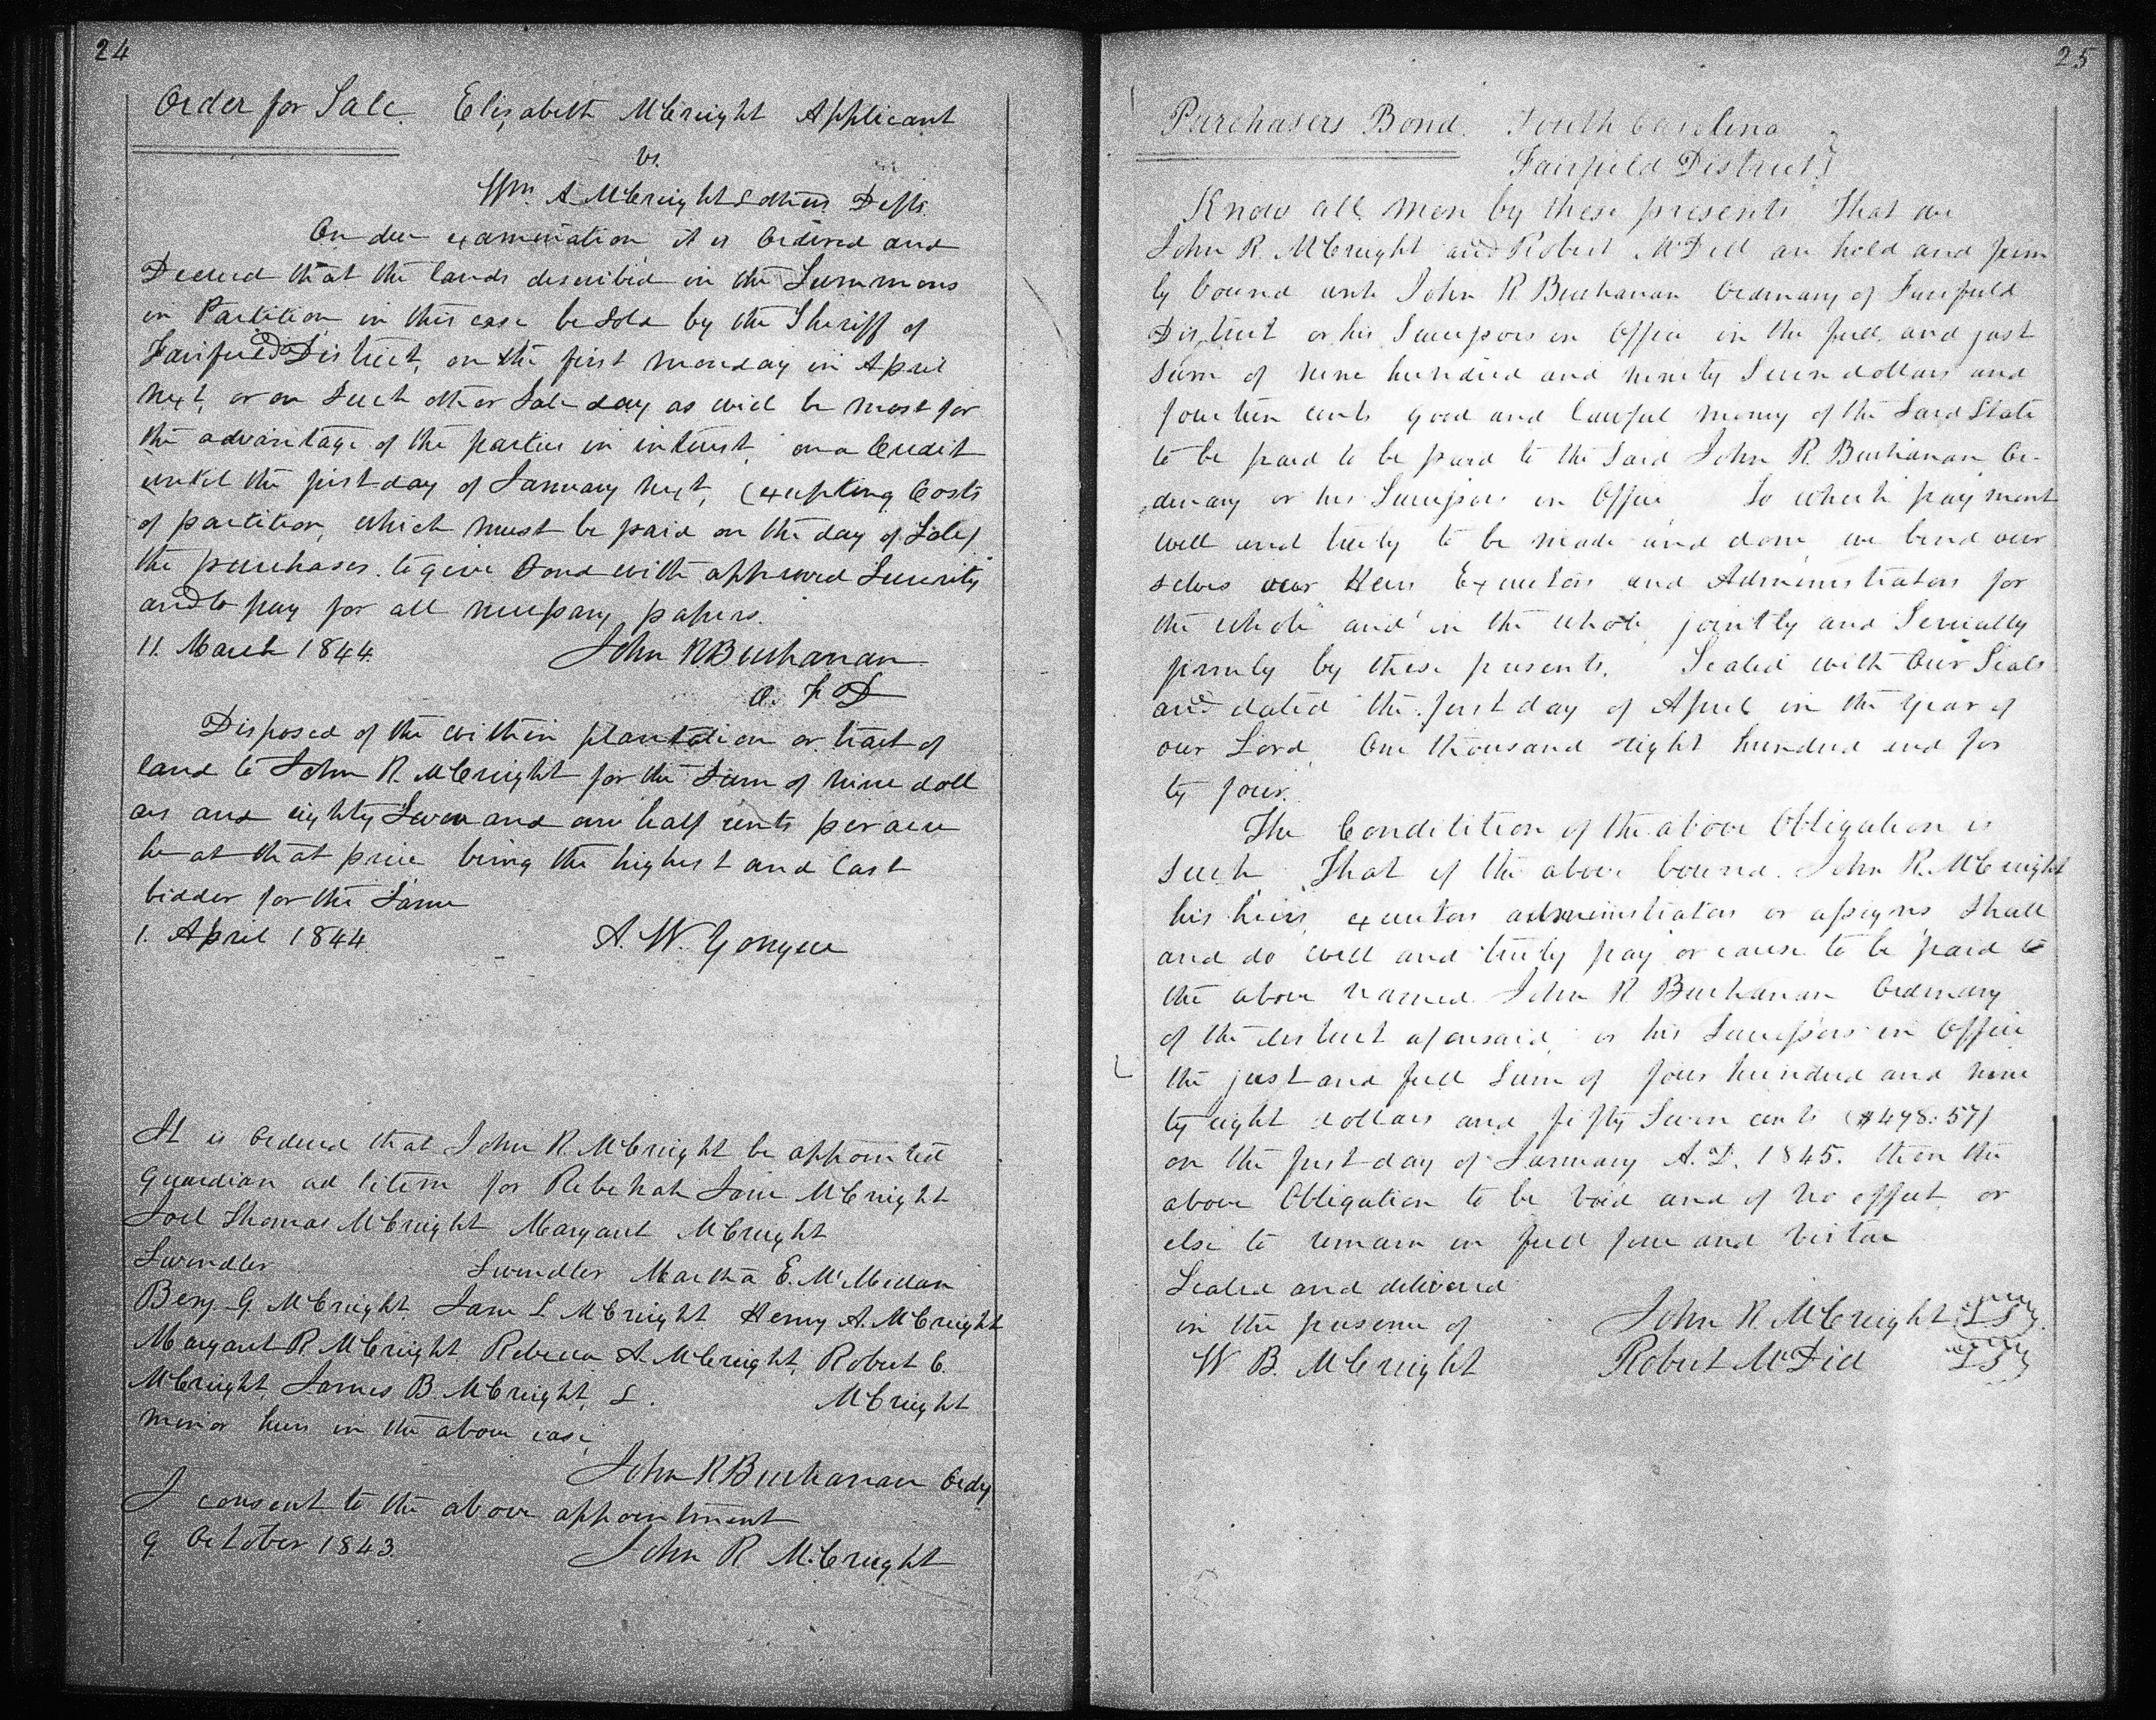 24
Order for Sale. Elizabeth McCreight Applicant
vs.
Wm. A McCreight & others Defts.
On due examination it is Ordered and
Decreed that the lands described in the Summons
in Partition in this case be sold by the Sheriff of
Fairfield District, on the first monday in April
next, or on such other Sale day as will be most for
the advantage of the parties in interest, on a Credit
untill the first day of January next, (excepting Costs
of partition, which must be paid on the day of Sale)
the purchaser to give Bond with approved Security
and to pay for all necessary papers.
11. March 1844. John R. Buchanan
O. F D
Disposed of the within plantation or tract of
land to John R. McCreight for the Sum of nine doll
ars and eighty Seven and one half cents per acre
he at that price being the highest and last
bidder for the Same
1. April 1844. A. W. Yongue
It is Ordered that John R. McCreight be appointed
guardian ad litem for Rebekah Jane McCreight
Joel Thomas McCreight Margaret McCreight
Swindler Swindler Martha E. McMillan
Benj. G. McCreight, Jane S. McCreight Henry A. McCreight
Margaret R. McCreight Rebecca A. McCreight, Robert C.
McCreight, James B. McCreight, S. McCreight
minor heirs in the above case,
John R Buchanan Ordy
I consent to the above appointment
9. October 1843. John R McCreight
25
Purchasers Bond. South Carolina
Fairfield District
Know all men by these presents That we
John R. McCreight and Robert McDill are held and firm
ly bound unto John R Buchanan Ordinary of Fairfield
District or his Successors in Office in the full and just
Sum of nine hundred and ninety Seven dollars and
fourteen cents good and lawful money of the Said State
to be paid to be paid to the Said John R. Buchanan Or-
dinary or his Successors in Office. To which payment
well and truly to be made and done, we bind our
selves our Heirs Executors and Administrators for
the whole and in the whole, jointly and Severally
firmly by these presents. Sealed with Our Seals
and dated the first day of April in the year of
our Lord, One thousand eight hundred and for
ty four.
The Conditition of the above Obligation is
such, That if the above bound. John R. McCreight
his heirs, executors administrators or assigns, Shall
and do well and truly pay or cause to be paid to
the above named John R Buchanan Ordinary
of the district aforesaid, or his Successors in Office
the just and full Sum of four hundred and nine
ty eight dollars and fifty Seven cents ($498.57)
on the first day of January A. D. 1845. then the
above Obligation to be void and of no effect, or
else to remain in full force and virtue
Sealed and delivered
in the presence of John R. McCreight LS
W B. McCreight Robert McDill LS